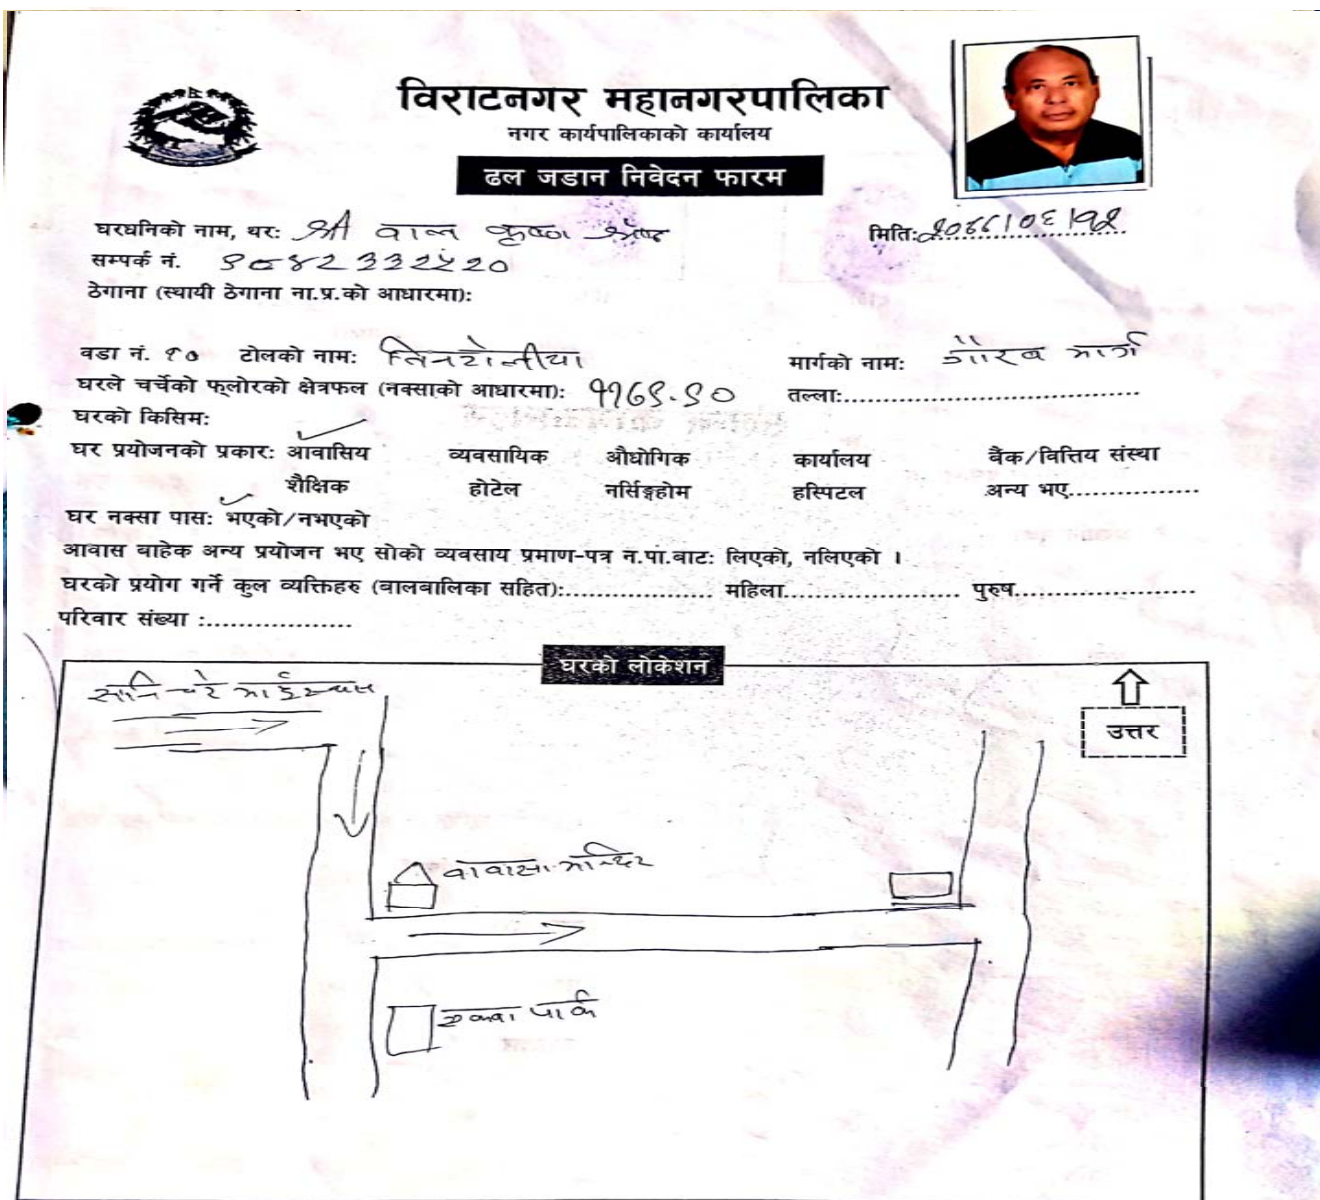 विराटनगर महानगरपालिका
नगर कार्यपालिकाको कार्यालय
ढल जडान निवेदन फारम
घरधनिको नाम, थरः श्री बाल कृष्ण श्रेष्ठ मितिः
सम्पर्क नं.
ठेगाना (स्थायी ठेगाना ना.प्र.को आधारमा):
वडा नं. १० टोलको नामः तिनटोलीया मार्गको नामः गौरब मार्ग
घरले चर्चेको फ्लोरको क्षेत्रफल (नक्साको आधारमा): ११७९.९० तल्लाः....................................
घरको किसिमः
घर प्रयोजनको प्रकारः आवासिय व्यवसायिक औधोगिक कार्यालय बैंक/वित्तिय संस्था
शैक्षिक होटेल नर्सिङ्गहोम हस्पिटल अन्य भए................
घर नक्सा पासः भएको/नभएको
आवास बाहेक अन्य प्रयोजन भए सोको व्यवसाय प्रमाण-पत्र न.पा.बाटः लिएको, नलिएको ।
घरको प्रयोग गर्ने कुल व्यक्तिहरु (बालबालिका सहित):.................. महिला..................... पुरुष......................
परिवार संख्या :..................
घरको लोकेशन
उत्तर
मन्दिर
पार्क